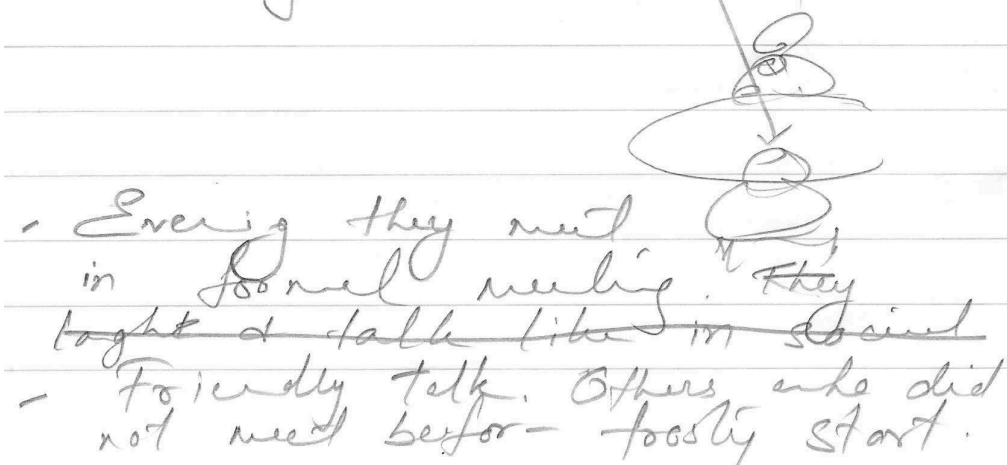 - Evening they meet
in formal meeting. They
laght & talk like in social
- Friendly talk. Others who did
not meet befor - frosty start.